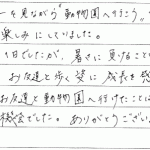 ーを見ながら"動物園へ行こう"
楽しみにしていました。
1日でしたが、暑さに負けること
お友達と歩く姿に成長を感
お友達と動物園へ行けたこと
機会でした。ありがとうござい